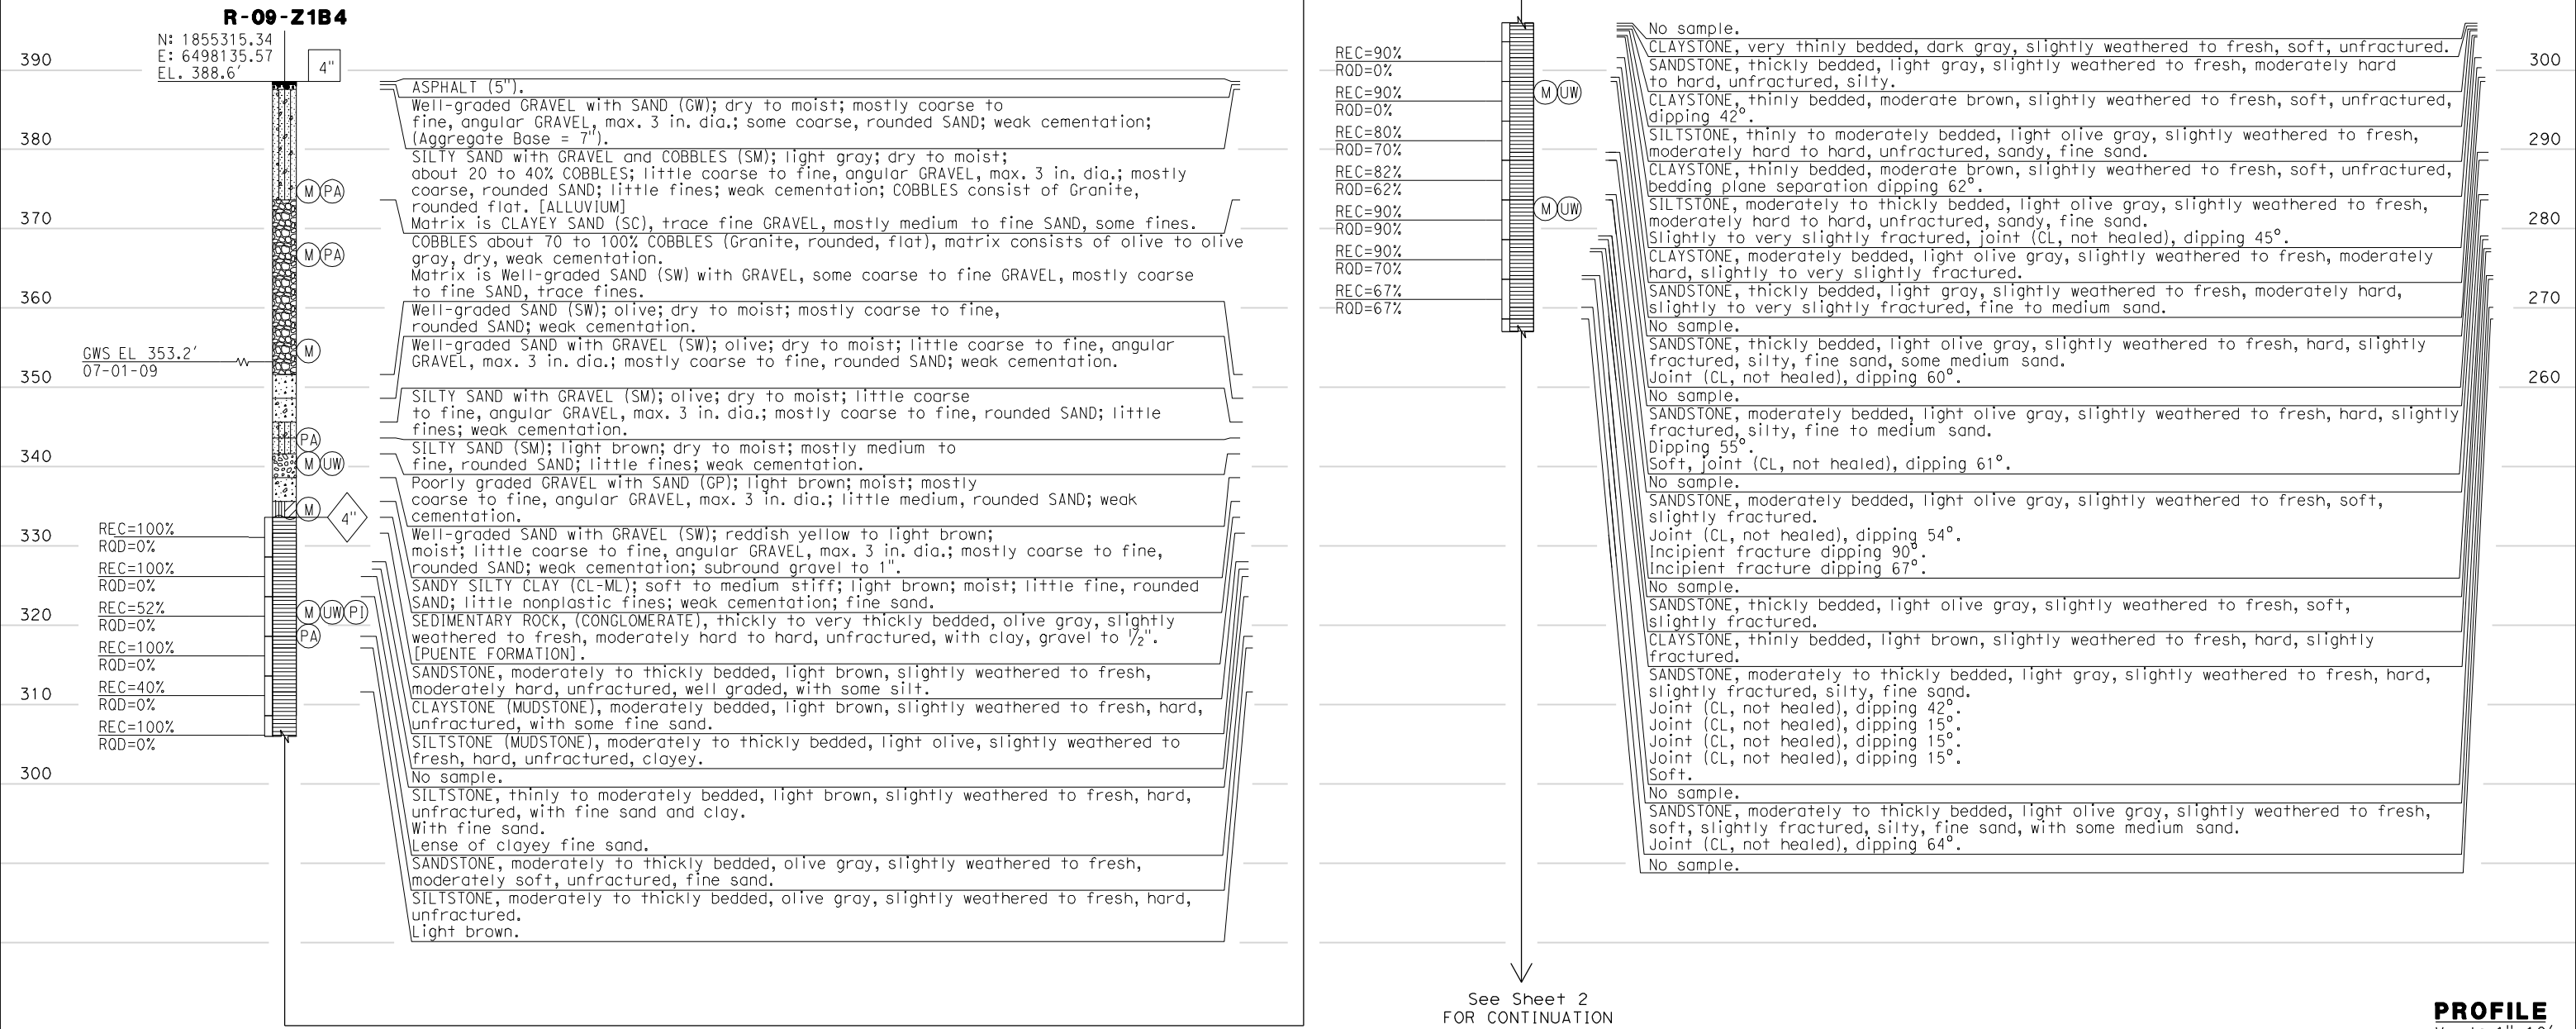 R-09-Z1B4
N: 1855315.34
E: 6498135.57
EL. 388.6'
4"
390
380
370
360
350
340
330
320
310
300
GWS EL 353.2'
07-01-09
M PA
M PA
M
PA
M UW
M
4"
M UW PI
PA
REC=100%
RQD=0%
REC=100%
RQD=0%
REC=52%
RQD=0%
REC=100%
RQD=0%
REC=40%
RQD=0%
REC=100%
RQD=0%
ASPHALT (5").
Well-graded GRAVEL with SAND (GW); dry to moist; mostly coarse to
fine, angular GRAVEL, max. 3 in. dia.; some coarse, rounded SAND; weak cementation;
(Aggregate Base = 7").
SILTY SAND with GRAVEL and COBBLES (SM); light gray; dry to moist;
about 20 to 40% COBBLES; little coarse to fine, angular GRAVEL, max. 3 in. dia.; mostly
coarse, rounded SAND; little fines; weak cementation; COBBLES consist of Granite,
rounded flat. [ALLUVIUM]
Matrix is CLAYEY SAND (SC), trace fine GRAVEL, mostly medium to fine SAND, some fines.
COBBLES about 70 to 100% COBBLES (Granite, rounded, flat), matrix consists of olive to olive
gray, dry, weak cementation.
Matrix is Well-graded SAND (SW) with GRAVEL, some coarse to fine GRAVEL, mostly coarse
to fine SAND, trace fines.
Well-graded SAND (SW); olive; dry to moist; mostly coarse to fine,
rounded SAND; weak cementation.
Well-graded SAND with GRAVEL (SW); olive; dry to moist; little coarse to fine, angular
GRAVEL, max. 3 in. dia.; mostly coarse to fine, rounded SAND; weak cementation.
SILTY SAND with GRAVEL (SM); olive; dry to moist; little coarse
to fine, angular GRAVEL, max. 3 in. dia.; mostly coarse to fine, rounded SAND; little
fines; weak cementation.
SILTY SAND (SM); light brown; dry to moist; mostly medium to
fine, rounded SAND; little fines; weak cementation.
Poorly graded GRAVEL with SAND (GP); light brown; moist; mostly
coarse to fine, angular GRAVEL, max. 3 in. dia.; little medium, rounded SAND; weak
cementation.
Well-graded SAND with GRAVEL (SW); reddish yellow to light brown;
moist; little coarse to fine, angular GRAVEL, max. 3 in. dia.; mostly coarse to fine,
rounded SAND; weak cementation; subround gravel to 1".
SANDY SILTY CLAY (CL-ML); soft to medium stiff; light brown; moist; little fine, rounded
SAND; little nonplastic fines; weak cementation; fine sand.
SEDIMENTARY ROCK, (CONGLOMERATE), thickly to very thickly bedded, olive gray, slightly
weathered to fresh, moderately hard to hard, unfractured, with clay, gravel to 1/2".
[PUENTE FORMATION].
SANDSTONE, moderately to thickly bedded, light brown, slightly weathered to fresh,
moderately hard, unfractured, well graded, with some silt.
CLAYSTONE (MUDSTONE), moderately bedded, light brown, slightly weathered to fresh, hard,
unfractured, with some fine sand.
SILTSTONE (MUDSTONE), moderately to thickly bedded, light olive, slightly weathered to
fresh, hard, unfractured, clayey.
No sample.
SILTSTONE, thinly to moderately bedded, light brown, slightly weathered to fresh, hard,
unfractured, with fine sand and clay.
With fine sand.
Lense of clayey fine sand.
SANDSTONE, moderately to thickly bedded, olive gray, slightly weathered to fresh,
moderately soft, unfractured, fine sand.
SILTSTONE, moderately to thickly bedded, olive gray, slightly weathered to fresh, hard,
unfractured.
Light brown.
REC=90%
RQD=0%
REC=90%
RQD=0%
REC=80%
RQD=70%
REC=82%
RQD=62%
REC=90%
RQD=90%
REC=90%
RQD=70%
REC=67%
RQD=67%
M UW
M UW
No sample.
CLAYSTONE, very thinly bedded, dark gray, slightly weathered to fresh, soft, unfractured.
SANDSTONE, thickly bedded, light gray, slightly weathered to fresh, moderately hard
to hard, unfractured, silty.
CLAYSTONE, thinly bedded, moderate brown, slightly weathered to fresh, soft, unfractured,
dipping 42°.
SILTSTONE, thinly to moderately bedded, light olive gray, slightly weathered to fresh,
moderately hard to hard, unfractured, sandy, fine sand.
CLAYSTONE, thinly bedded, moderate brown, slightly weathered to fresh, soft, unfractured,
bedding plane separation dipping 62°.
SILTSTONE, moderately to thickly bedded, light olive gray, slightly weathered to fresh,
moderately hard to hard, unfractured, sandy, fine sand.
Slightly to very slightly fractured, joint (CL, not healed), dipping 45°.
CLAYSTONE, moderately bedded, light olive gray, slightly weathered to fresh, moderately
hard, slightly to very slightly fractured.
SANDSTONE, thickly bedded, light gray, slightly weathered to fresh, moderately hard,
slightly to very slightly fractured, fine to medium sand.
No sample.
SANDSTONE, thickly bedded, light olive gray, slightly weathered to fresh, hard, slightly
fractured, silty, fine sand, some medium sand.
Joint (CL, not healed), dipping 60°.
No sample.
SANDSTONE, moderately bedded, light olive gray, slightly weathered to fresh, hard, slightly
fractured, silty, fine to medium sand.
Dipping 55°.
Soft, joint (CL, not healed), dipping 61°.
No sample.
SANDSTONE, moderately bedded, light olive gray, slightly weathered to fresh, soft,
slightly fractured.
Joint (CL, not healed), dipping 54°.
Incipient fracture dipping 90°.
Incipient fracture dipping 67°.
No sample.
SANDSTONE, thickly bedded, light olive gray, slightly weathered to fresh, soft,
slightly fractured.
CLAYSTONE, thinly bedded, light brown, slightly weathered to fresh, hard, slightly
fractured.
SANDSTONE, moderately to thickly bedded, light gray, slightly weathered to fresh, hard,
slightly fractured, silty, fine sand.
Joint (CL, not healed), dipping 42°.
Joint (CL, not healed), dipping 15°.
Joint (CL, not healed), dipping 15°.
Joint (CL, not healed), dipping 15°.
Soft.
No sample.
SANDSTONE, moderately to thickly bedded, light olive gray, slightly weathered to fresh,
soft, slightly fractured, silty, fine sand, with some medium sand.
Joint (CL, not healed), dipping 64°.
No sample.
300
290
280
270
260
See Sheet 2
FOR CONTINUATION
PROFILE